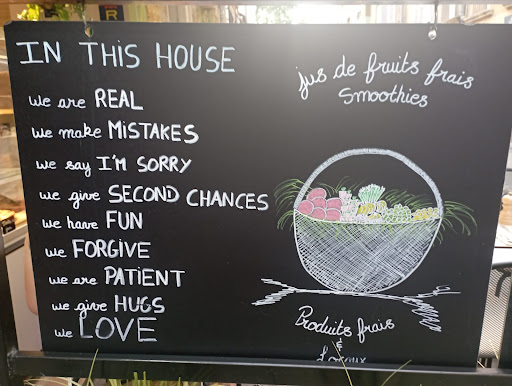 IN THIS HOUSE
we are REAL
we make MISTAKES
we say I'M SORRY
we give SECOND CHANCES
we have FUN
we FORGIVE
we are PATIENT
we give HUGS
we LOVE
jus de fruits frais
Smoothies
Produits frais
&
Locaux
R